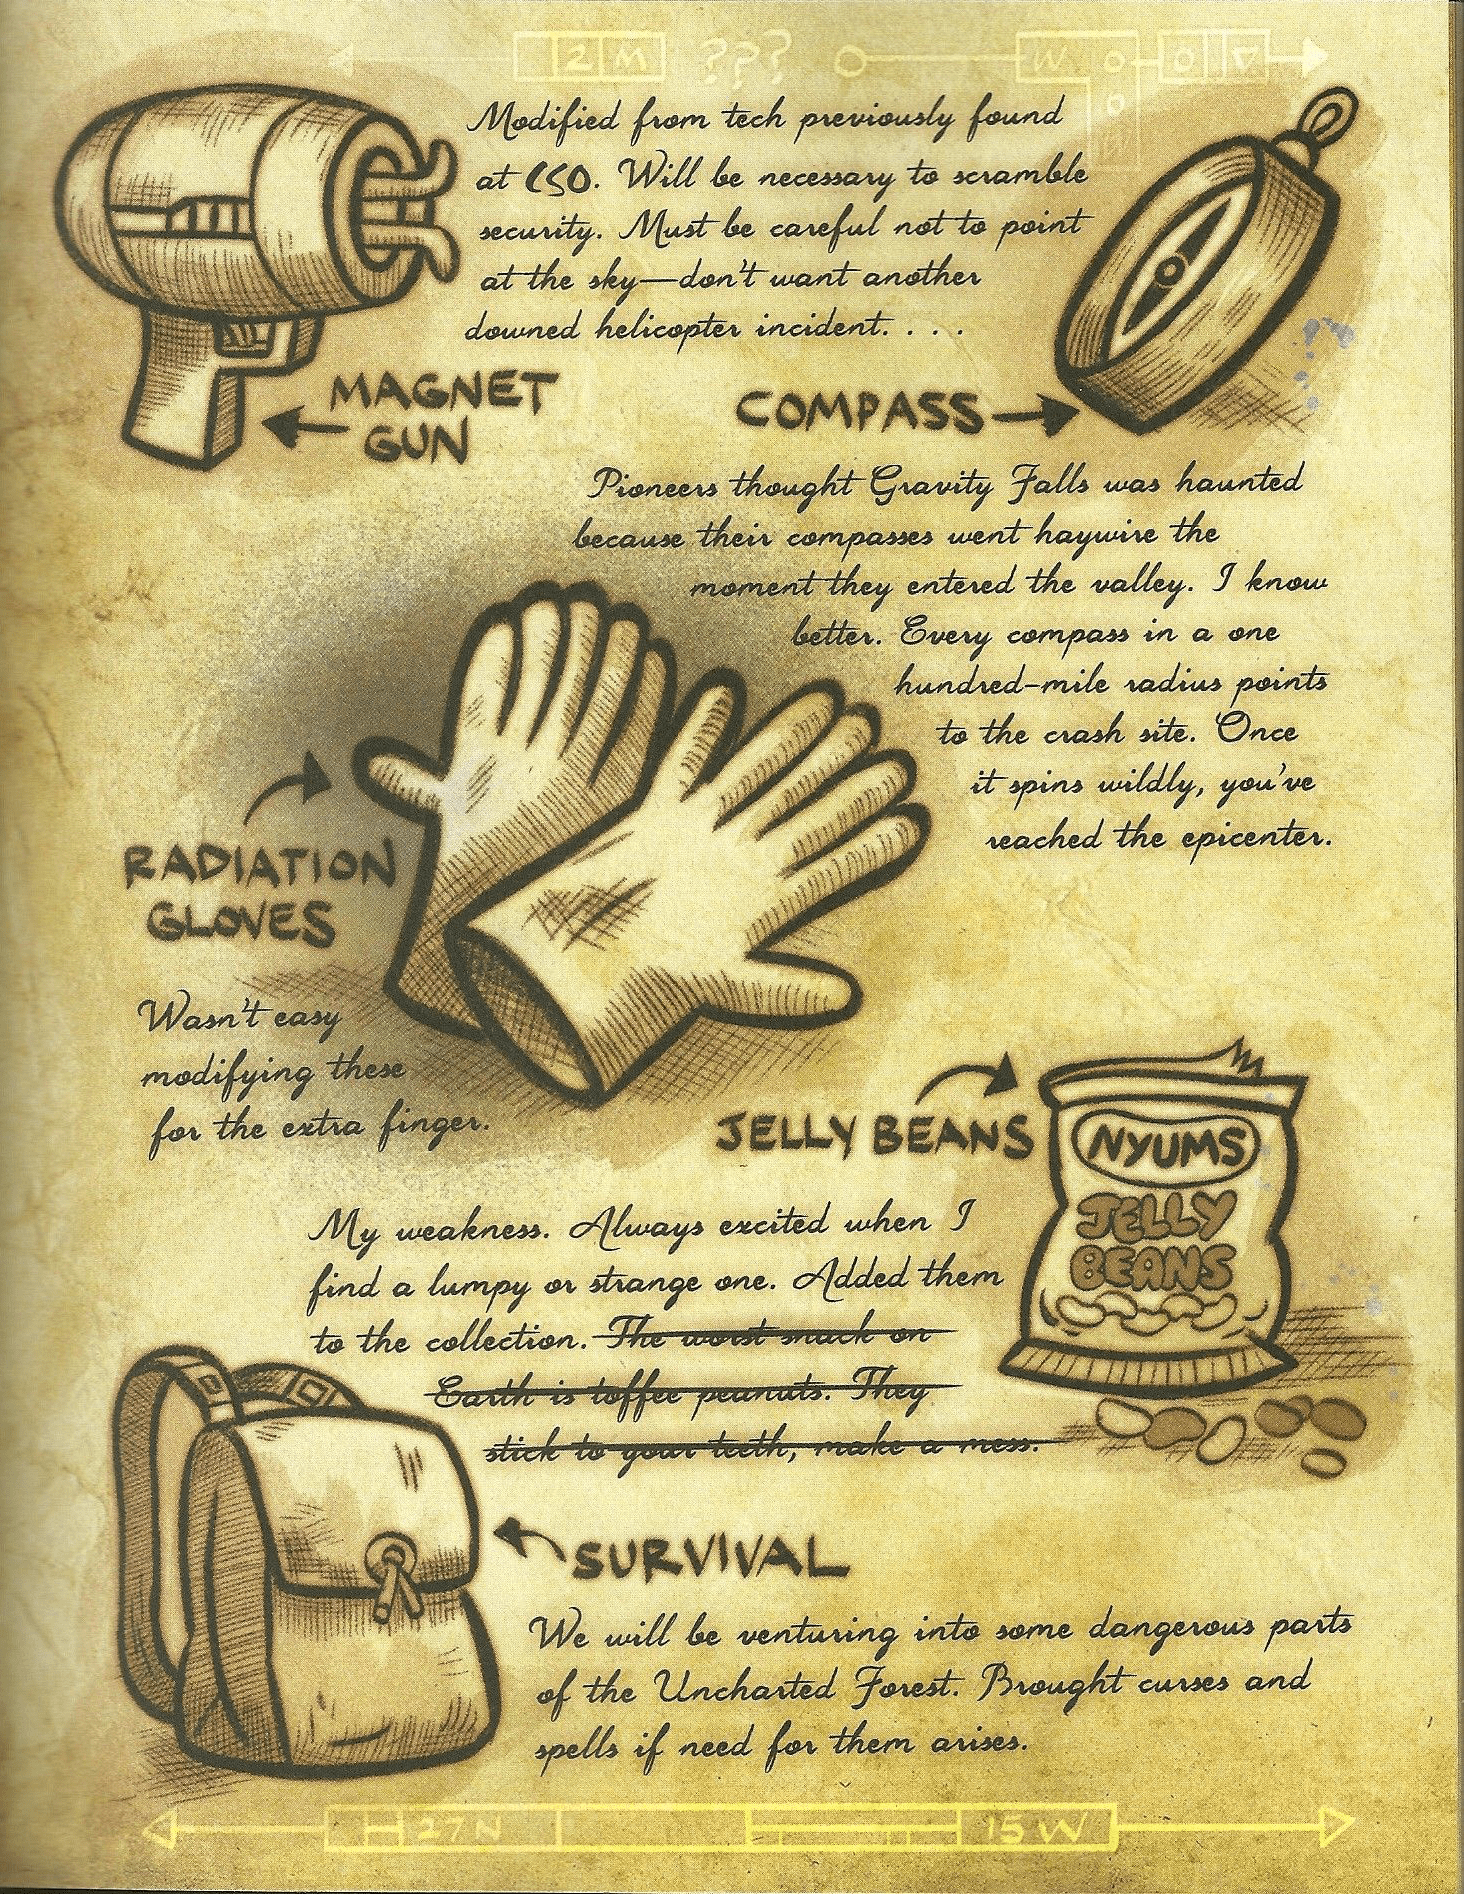 2M ??? W O O V
O
Modified from tech previously found
at CSO. Will be necessary to scramble
security. Must be careful not to point
at the sky—don't want another
downed helicopter incident. . . .
MAGNET
GUN
COMPASS
Pioneers thought Gravity Falls was haunted
because their compasses went haywire the
moment they entered the valley. I know
better. Every compass in a one
hundred-mile radius points
to the crash site. Once
it spins wildly, you've
reached the epicenter.
RADIATION
GLOVES
Wasn't easy
modifying these
for the extra finger.
JELLY BEANS
NYUMS
JELLY
BEANS
My weakness. Always excited when I
find a lumpy or strange one. Added them
to the collection. The worst snack on
Earth is toffee peanuts. They
stick to your teeth, make a mess.
SURVIVAL
We will be venturing into some dangerous parts
of the Uncharted Forest. Brought curses and
spells if need for them arises.
27N 15W